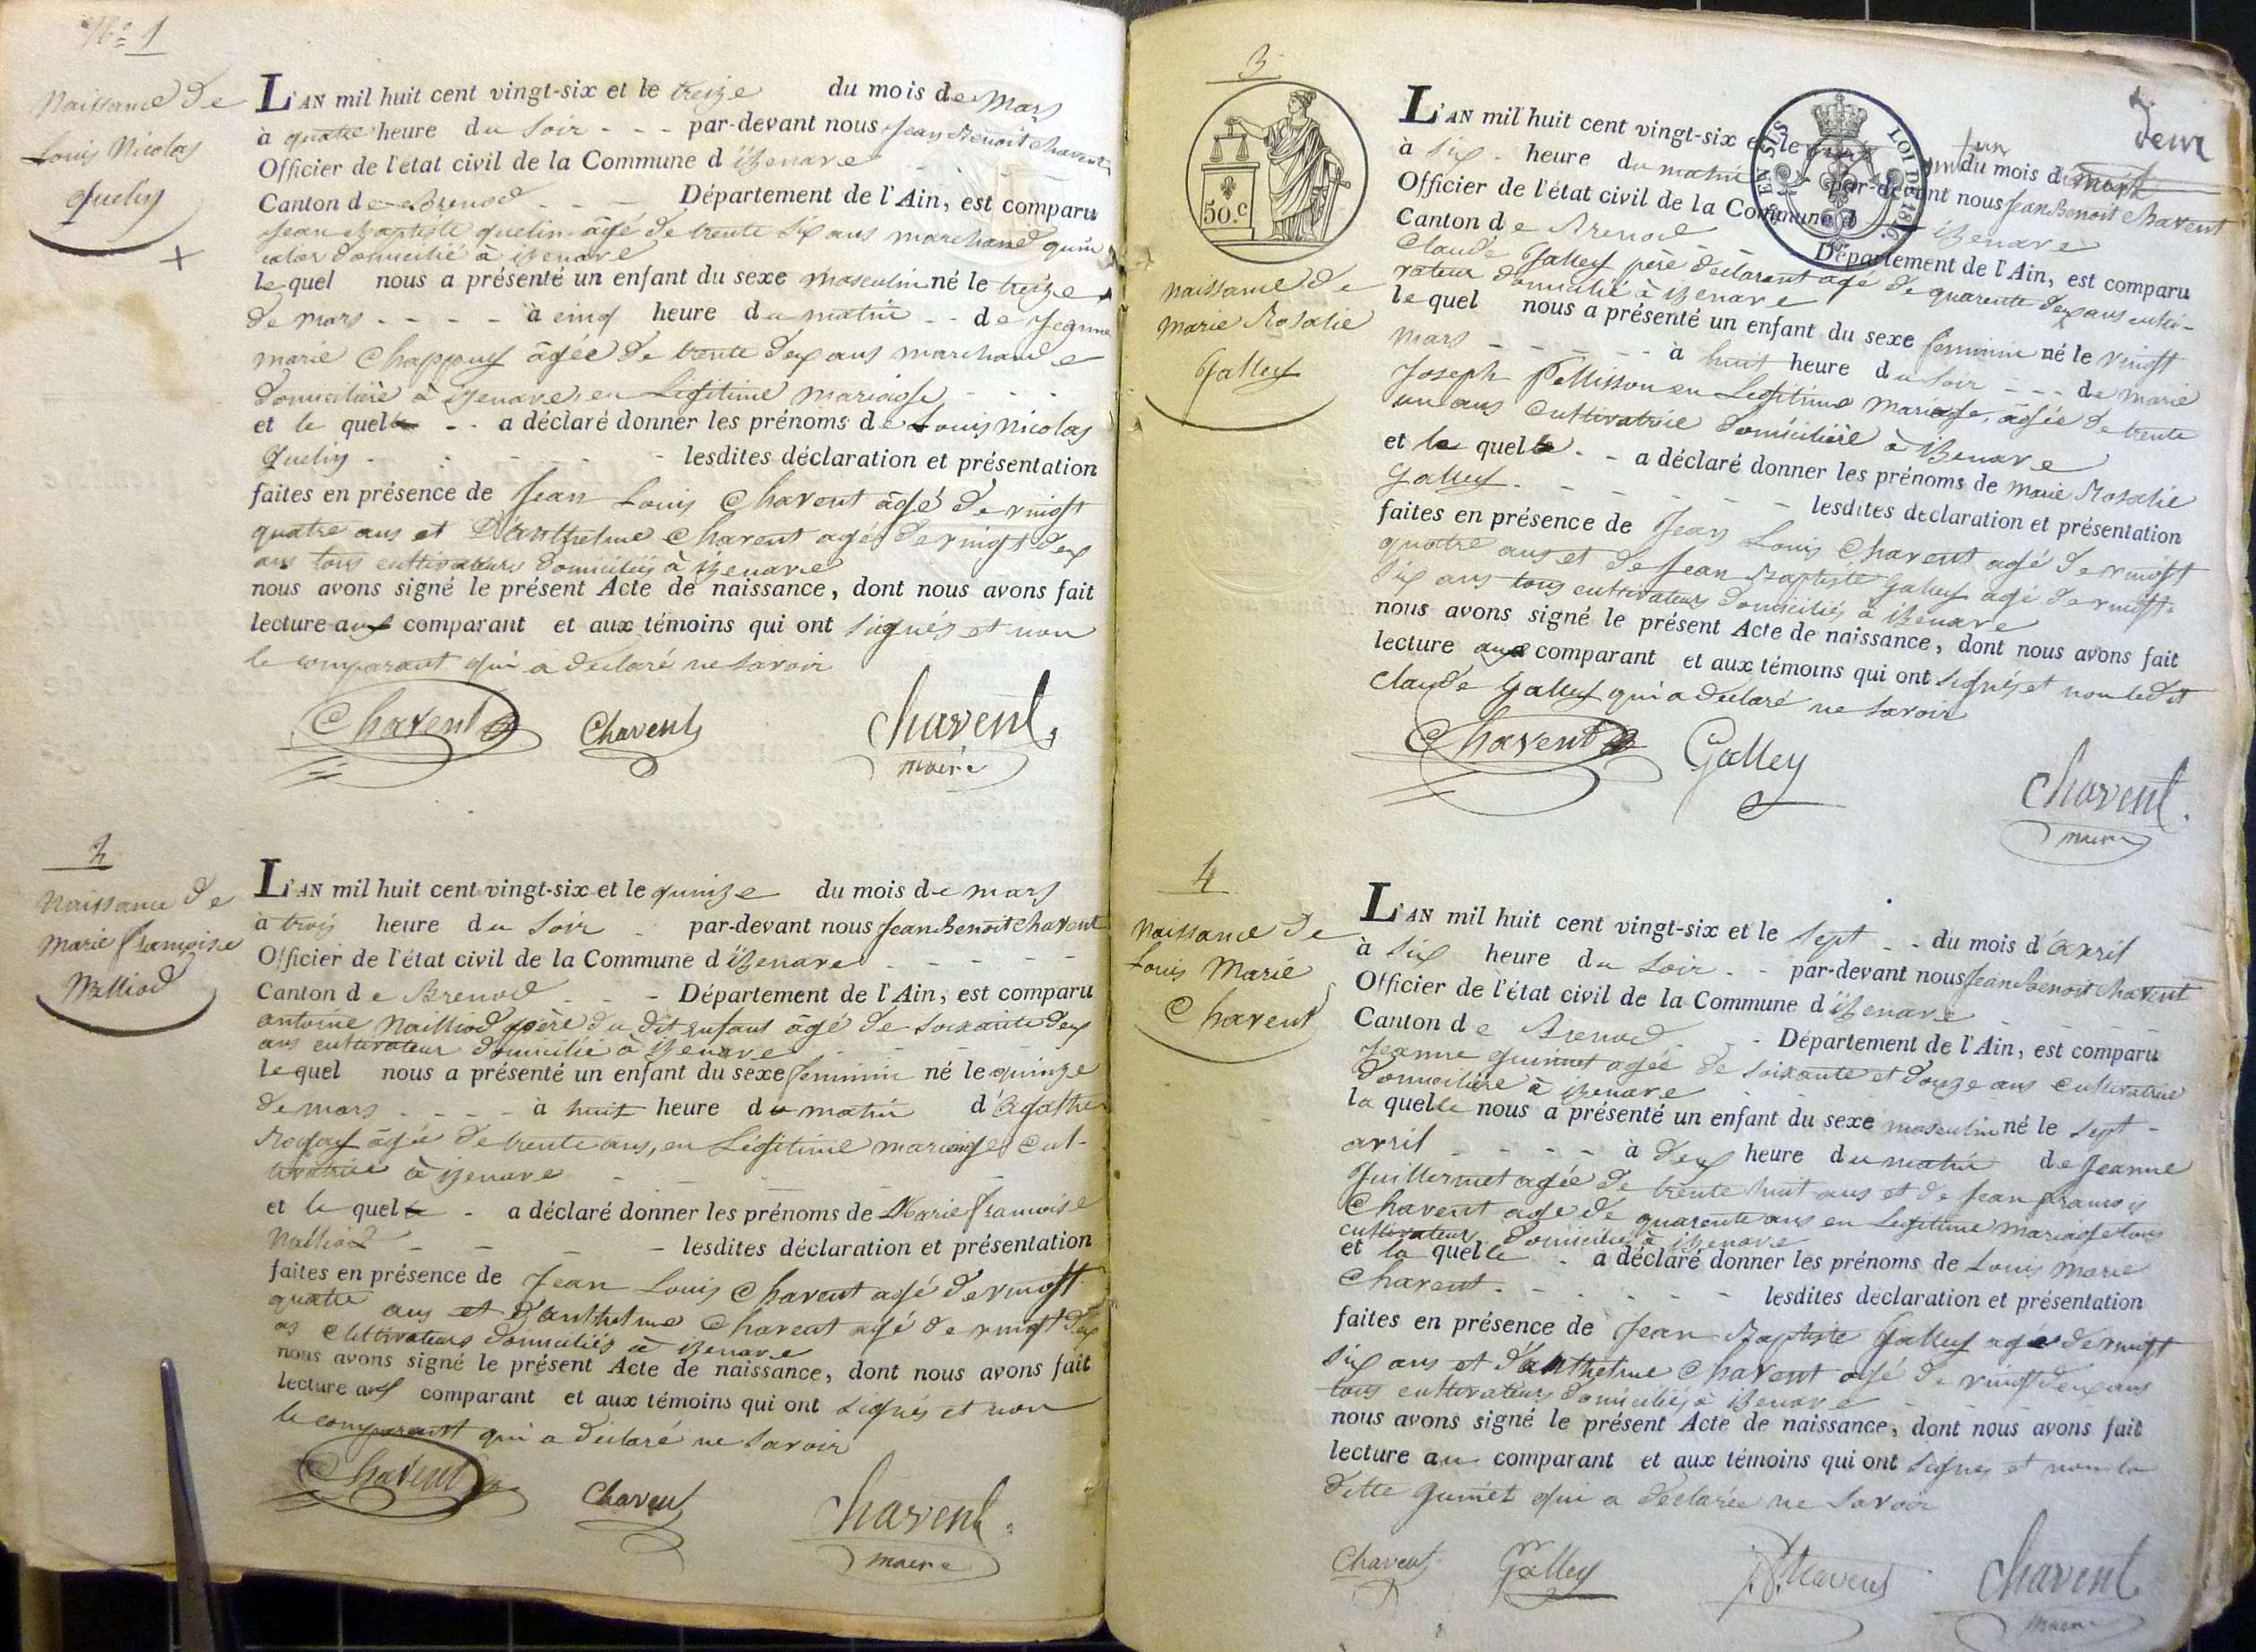 N.º 1
Naissance de
Louis Nicolas
Quelin
L'AN mil huit cent vingt-six et le treize du mois de Mars
à quatre heure du soir - - - par-devant nous Jean Benoit Chavent
Officier de l'état civil de la Commune d'izenave
Canton de Brenod - - - Département de l'Ain, est comparu
Jean Baptiste quelin âgé de trente six ans marchand quin
calier domicilié à izenave
le quel nous a présenté un enfant du sexe masculin né le treize
de mars - - - - à cinq heure du matin - - de
marie Chappuy âgée de trente deux ans marchande
domicilière à izenave, en Legitime mariage
et le quel - - a déclaré donner les prénoms de Louis Nicolas
Quelin - - - - - lesdites déclaration et présentation
faites en présence de Jean Louis Chavent âgé de vingt
quatre ans et D'anthelme Chavent agé de vingt deux
ans tous cultivateurs domiciliés à izenave
nous avons signé le présent Acte de naissance, dont nous avons fait
lecture aux comparant et aux témoins qui ont signés et non
le comparant qui a declaré ne savoir
Chavent Chavent Chavent
maire
2
Naissance de
Marie françoise
Nalliod
L'AN mil huit cent vingt-six et le quinze du mois de mars
à trois heure du soir - par-devant nous Jean Benoit Chavent
Officier de l'état civil de la Commune d'izenave - - - - -
Canton de Brenod - - - Département de l'Ain, est comparu
antoine Nailliod père du dit enfant âgé de soixante deux
ans cultivateur domicilié à izenave
le quel nous a présenté un enfant du sexe feminin né le quinze
de mars - - - - à huit heure du matin d'Agathe
âgée de trente ans, en Légitime mariage, cul-
tivatrice à izenave
et le quel - a déclaré donner les prénoms de Marie françoise
Nalliod - - - - lesdites déclaration et présentation
faites en présence de Jean Louis Chavent agé de vingt
quatre ans et d'anthelme Chavent agé de vingt deux
as cultivateurs domiciliés à izenave
nous avons signé le présent Acte de naissance, dont nous avons fait
lecture aux comparant et aux témoins qui ont signés et non
le comparant qui a déclaré ne savoir
Chavent Chavent Chavent
maire
3
50.c
EN SUS LOI DE 1816.
deux
naissance de
Marie Rosalie
Galley
L'AN mil huit cent vingt-six et le du mois d
à six - heure du matin par-devant nous Jean Benoit Chavent
Officier de l'état civil de la Commune d'izenave
Canton de Brenod - - Département de l'Ain, est comparu
Claude Galley père declarant agé de quarente deux ans culti-
vateur domicilié à izenave
le quel nous a présenté un enfant du sexe feminin né le vingt
mars - - - - - à huit heure du soir - - - de marie
Joseph Pellisson en Legitime mariage, âgée de trente
un ans cultivatrice domicilière à izenave
et le quel - - a déclaré donner les prénoms de marie Rosalie
Galley - - - - - - lesdites declaration et présentation
faites en présence de Jean Louis Chavent agé de vingt
quatre ans et de Jean Baptiste Galley agé de vingt-
six ans tous cultivateurs domiciliés à izenave
nous avons signé le présent Acte de naissance, dont nous avons fait
lecture aux comparant et aux témoins qui ont signés et non ledit
Claude Galley qui a declaré ne savoir
Chavent Galley Chavent
maire
4
Naissance de
Louis Marie
Chavent
L'AN mil huit cent vingt-six et le sept - - du mois d'avril
à six heure du soir - - par-devant nous Jean Benoit Chavent
Officier de l'état civil de la Commune d'izenave
Canton de Brenod - - - Département de l'Ain, est comparu
Jeanne guinnet agée de soixante et douze ans cultivatrice
domicilière à izenave
la quelle nous a présenté un enfant du sexe masculin né le sept -
avril - - - - à deux heure du matin de Jeanne
Guillermet agée de trente huit ans et de Jean françois
Chavent age de quarente ans en legitime mariage tous
cultivateurs domiciliés à izenave
et la quelle - a déclaré donner les prénoms de Louis Marie
Chavent - - - - - - lesdites declaration et présentation
faites en présence de Jean Baptiste Galley agé de vingt
six ans et d'anthelme Chavent agé de vingt deux ans
tous cultivateurs domiciliés à izenave
nous avons signé le présent Acte de naissance, dont nous avons fait
lecture au comparant et aux témoins qui ont signés et non la
ditte guinet qui a déclarée ne savoir
Chavent Galley Chavent Chavent
maire